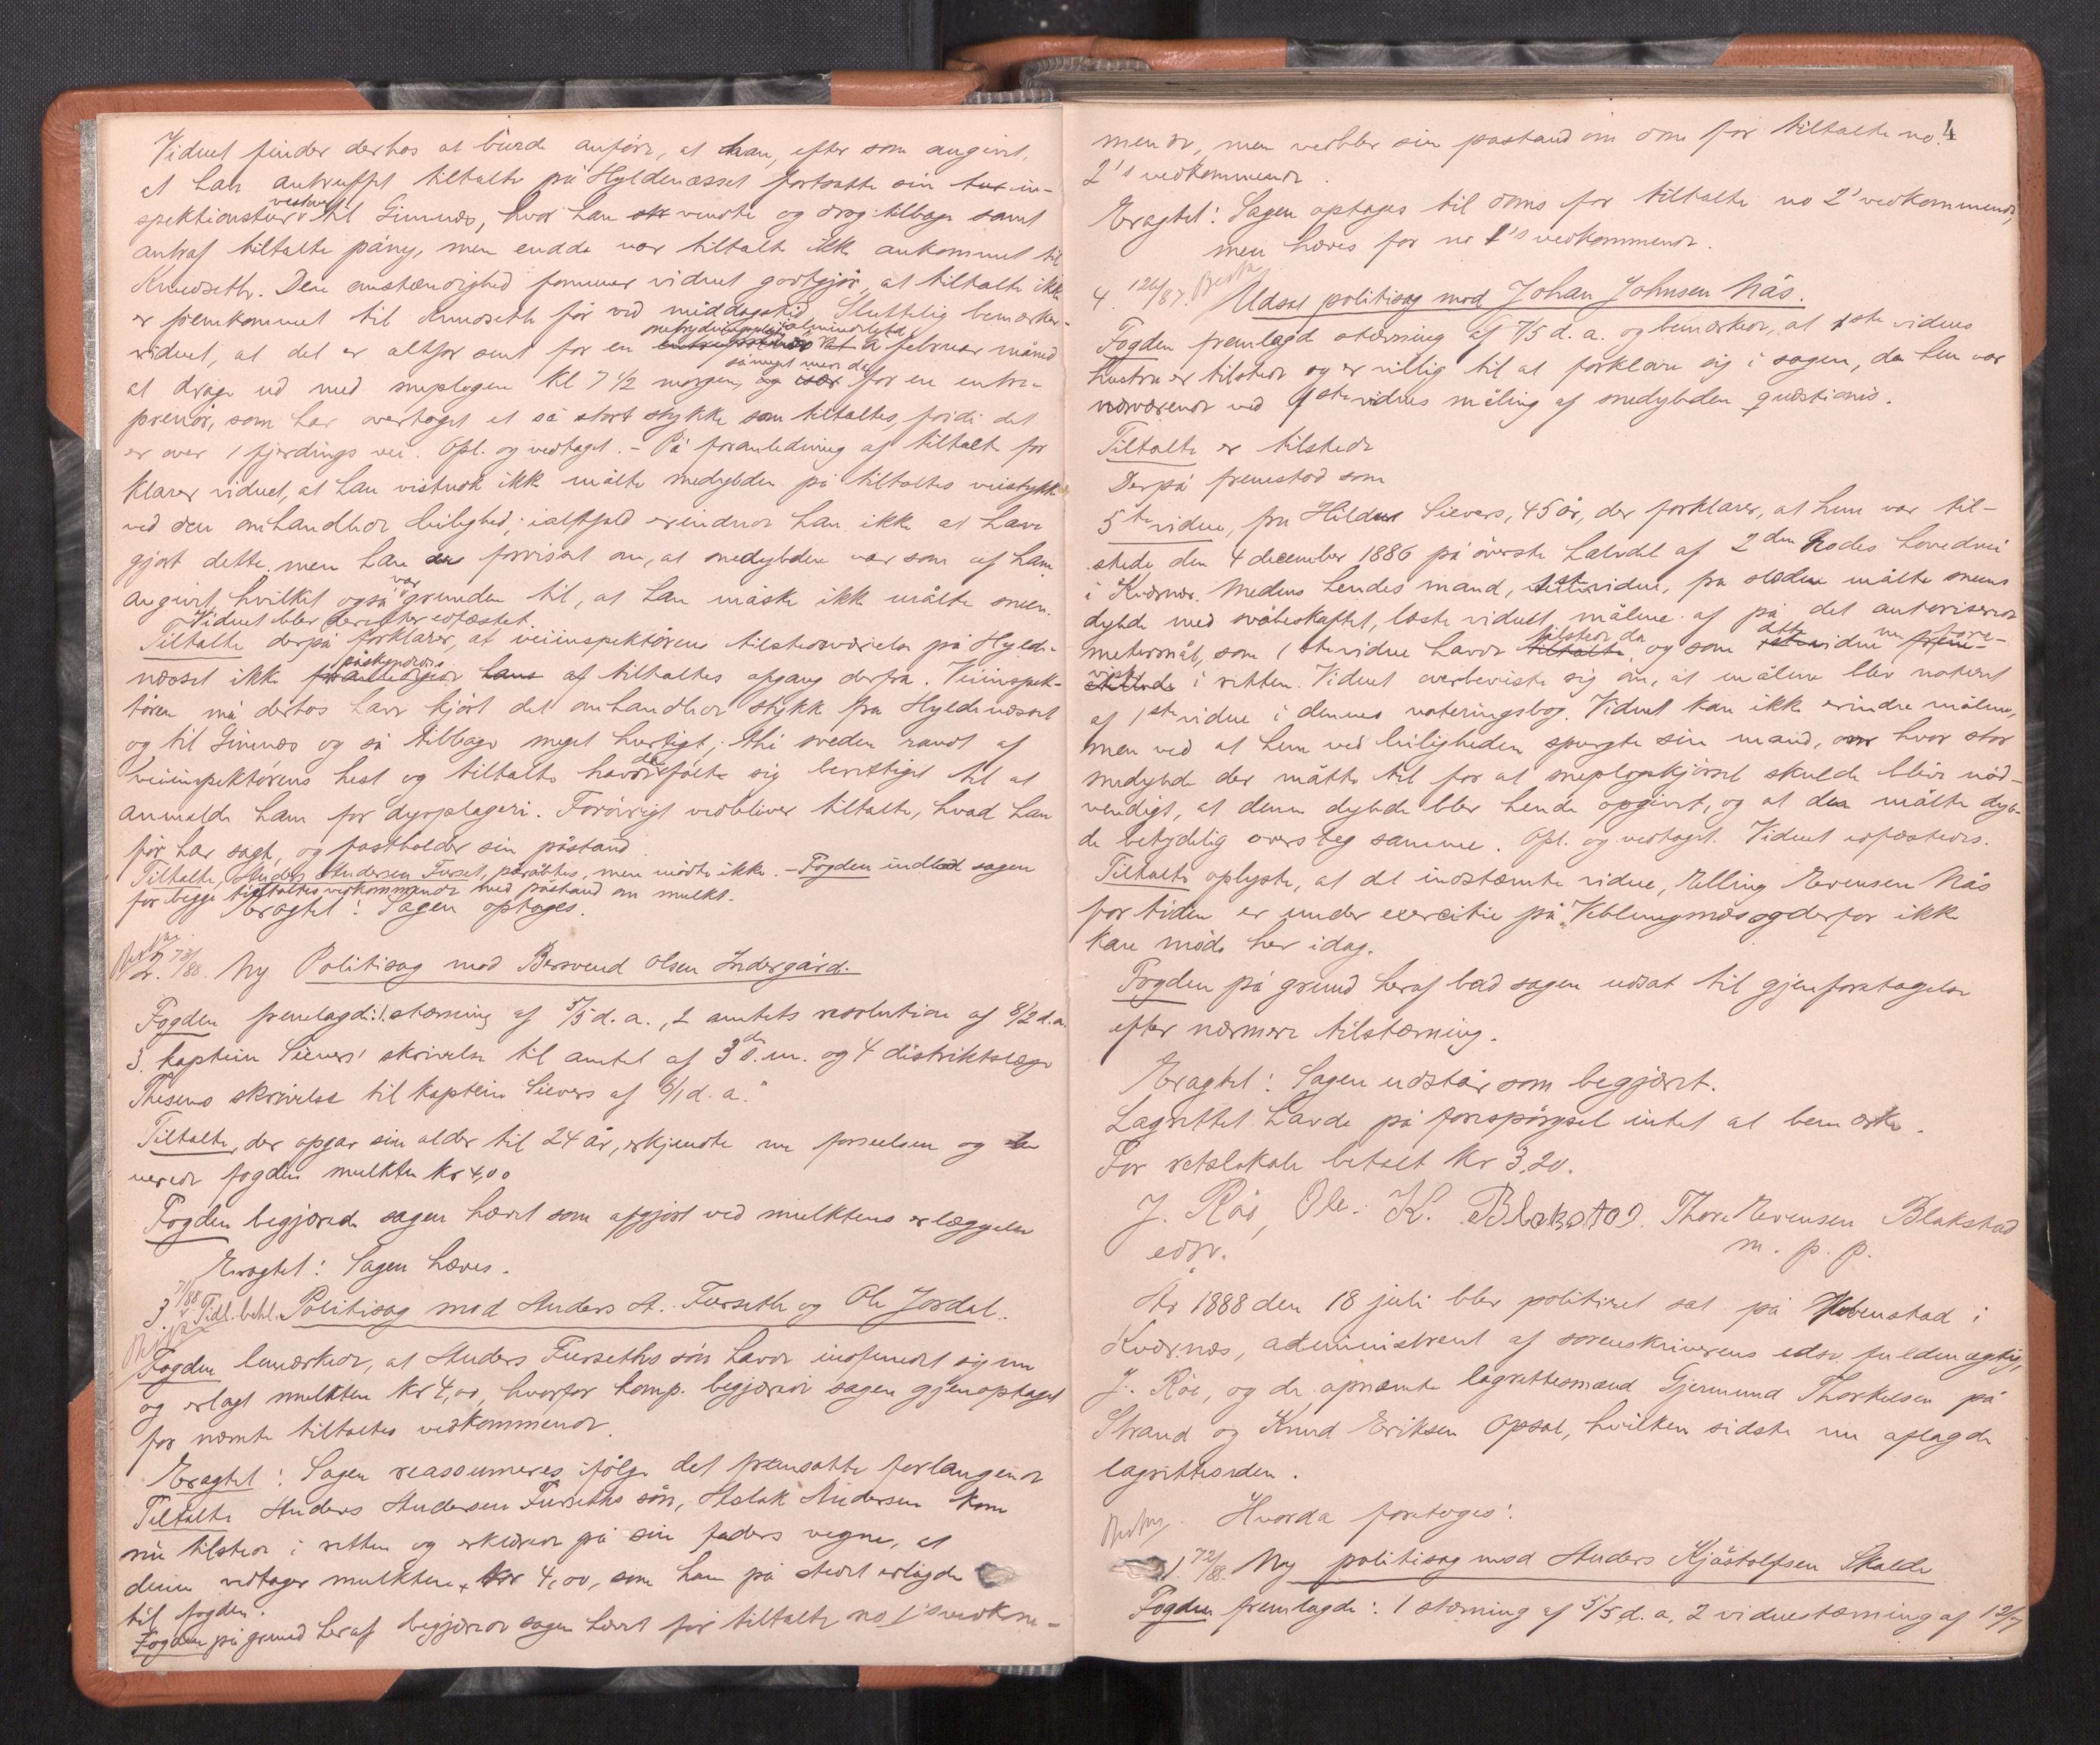 Vidnet finder derhos at burde anføre, at han, efter som angivet,
at han antruffet tiltalte på Hyldenæsset fortsatte sin tur in-
spektionstur vestover til Gimnæs, hvor han vendte og drog tilbage samt
antraf tiltalte påny, men endda var tiltalte ikke ankommet til
Knudseth. Den omstændighed formener vidnet godtgjør, at tiltalte ikke
er fremkommet til Knudseth før ved middagstid. Sluttelig bemærker
vidnet, at det er altfor sent for en almindelig i februar måned
at drage ud med sneplogen kl 7 1/2 morgen, og især såmeget mer da for en entre-
prenør, som har overtaget et så stort stykke som tiltaltes, fordi det
er over 1 fjerdings vei. Opl. og vedtaget. – På foranledning af tiltalte for
klarer vidnet, at han vistnok ikke målte snedybden på tiltaltes veistykke
ved den omhandlede leilighed; ialfald erindrer han ikke at have
gjort dette, men han er forvisset om, at snedybden var som af ham
angivet, hvilket også var grunden til, at han måske ikke målte sneen.
Vidnet blev derefter edfæstet.
Tiltalte derpå forklarer, at veiinspektørens tilstedeværelse på Hylde-
næsset ikke påskyndede hans af tiltaltes afgang derfra. Veiinspek-
tøren må derhos have kjørt det omhandlede stykke fra Hyldenæsset
og til Gimnæs og så tilbage meget hurtigt, thi sveden randt af
veiinspektørens hest og tiltalte havde følte sig berettiget til at
anmelde ham for dyrplageri. Forøvrigt vedbliver tiltalte, hvad han
før har sagt, og fastholder sin påstand.
Tiltalte, Anders Andersen Furset, påråbtes, men mødte ikke. – Fogden indlod sagen
for begge tiltaltes vedkommende med påstand om mulkt.
Eragtet: Sagen optages.
2. 73/88. Ny Politisag mod Bersvend Olsen Indergård.
Fogden fremlagde: 1. stævning af 5/5 d. a., 2 amtets resolution af 8/2 d. a.
3. kaptein Sievers' skrivelse til amtet af 3 d. m. og 4 distriktslæge
Thesens skrivelse til kaptein Sievers af 6/1 d. a.
Tiltalte, der opgav sin alder til 24 år, erkjendte nu forseelsen og le
verede fogden mulkten kr 4,00
Fogden begjærede sagen hævet som afgjort ved mulktens erlæggelse
Eragtet: Sagen hæves.
3. 71/88 Tidl. behl. Politisag mod Anders A. Furseth og Ole Jordal.
Fogden bemærkede, at Anders Furseths søn havde indfundet sig nu
og erlagt mulkten kr 4,00, hvorfor komp. begjærede sagen gjenoptaget
for nævnte tiltaltes vedkommende.
Eragtet: Sagen reassumeres ifølge det fremsatte forlangende
Tiltalte Anders Andersen Furseths søn, Aslak Andersen kom
nu tilstede i retten og erklærede på sin faders vegne, at
denne vedtager mulkten, kr 4,00, som han på stedet erlagde
til fogden.
Fogden på grund heraf begjærede sagen hævet for tiltalte no 1's vedkom-
4
mende, men vedblev sin påstand om dom for tiltalte no
2's vedkommende.
Eragtet: Sagen optages til doms for tiltalte no 2's vedkommende,
men hæves for no 1's vedkommende.
4. 126/87. Udsat politisag mod Johan Johnsen Nås.
Fogden fremlagde stævning af 7/5 d. a. og bemærkede, at 1ste vidnes
hustru er tilstede og er villig til at forklare sig i sagen, da hun var
nærværende ved 1ste vidnes måling af snedybden quæstionis.
Tiltalte er tilstede
Derpå fremstod som
5te vidne, fru Hildur Sievers, 45 år, der forklarer, at hun var til-
stede den 4 december 1886 på øverste halvdel af 2den Rodes hovedvei
i Kværnes. Medens hendes mand, 1ste vidne, fra slæden målte sneens
dybde med svøbeskaftet, læste vidnet målene af på det autoriserede
metermål, som 1ste vidne havde tiltalte tilstede da, og som dette vidne nu fore-
viste i retten. Vidnet overbeviste sig om, at målene blev noteret
af 1ste vidne i dennes noteringsbog. Vidnet kan ikke erindre målene,
men ved at hun ved leiligheden spurgte sin mand, om hvor stor
snedybde der måtte til for at sneplogkjørsel skulde blive nød-
vendigt, at denne dybde blev hende opgivet, og at den målte dyb-
de betydelig oversteg samme. Opl. og vedtaget. Vidnet edfæstedes.
Tiltalte oplyste, at det indstævnte vidne, Elling Evensen Nås
for tiden er under exercitie på Veblungsnæs og derfor ikke
kan møde her idag.
Fogden på grund heraf bad sagen udsat til gjenforetagelse
efter nærmere tilstævning.
Eragtet: Sagen udstår som begjæret.
Lagrettet havde på forespørgsel intet at bemærke.
For retslokale betalt kr 3,20.
J. Röe, Ole. K. Blakstad. Thore Evensen Blakstad
edsv. m. p. p.
År 1888 den 18 juli blev politiret sat på Høbenstad i
Kværnæs, administreret af sorenskriverens edsv. fuldmægtig,
J. Röe, og de opnævnte lagrettesmænd Gjermund Thorkelsen på
Strand og Knud Eriksen Opsal, hvilken sidste nu aflagde
lagretteseden.
Hvorda foretoges:
1. 72/88. Ny politisag mod Anders Kjøstolfsen Skalde
Fogden fremlagde: 1 stævning af 5/5 d. a, 2 vidnestævning af 12/7